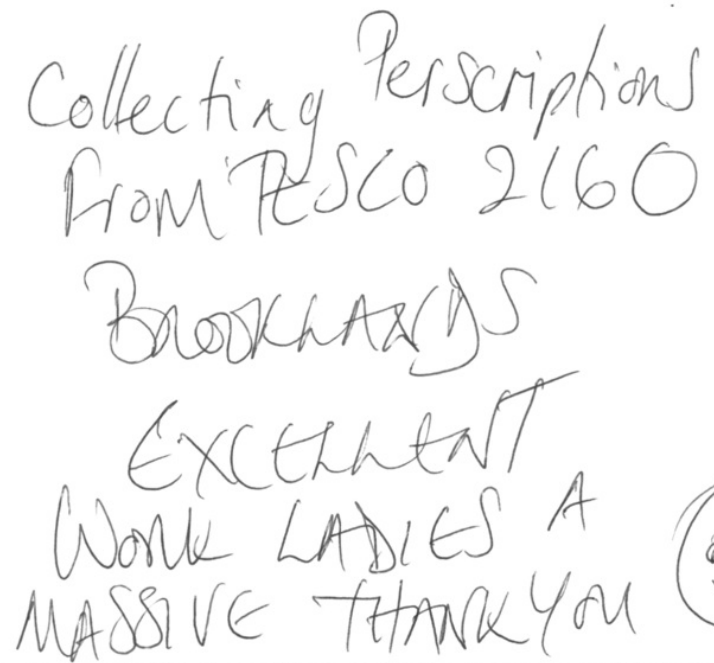 Collecting Perscriptions
From TESCO 2160
BROOKLANDS
EXCELLENT
WORK LADIES A
MASSIVE THANK YOU